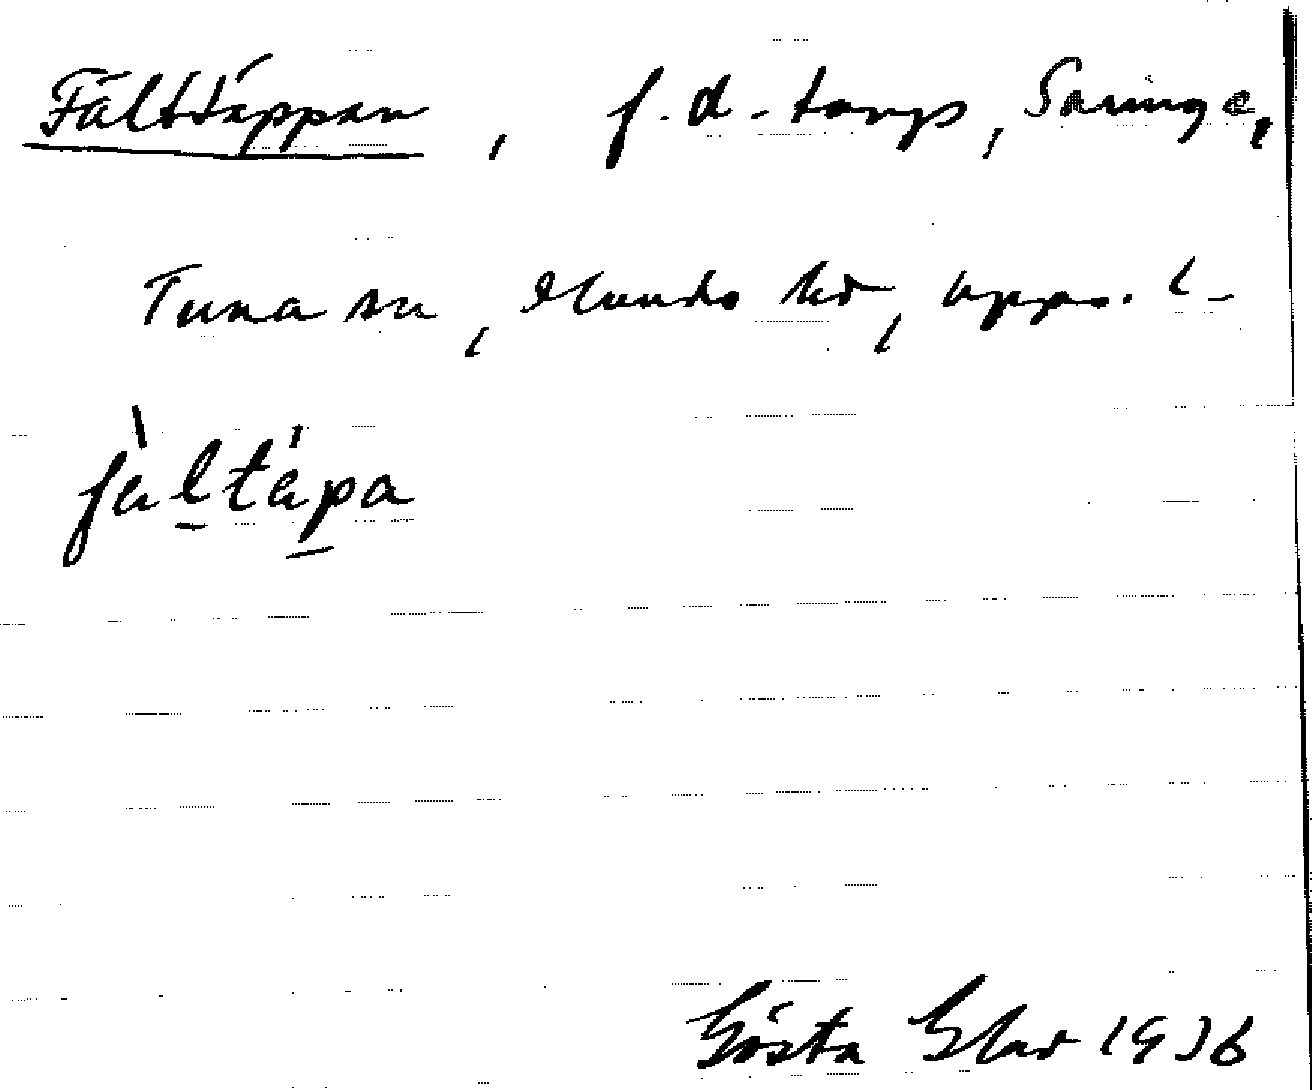 Fälttäppan, f.d. torp, Saringe,
Tuna sn, Olands hd, Upps. l.
fältäpa
Gösta 1936